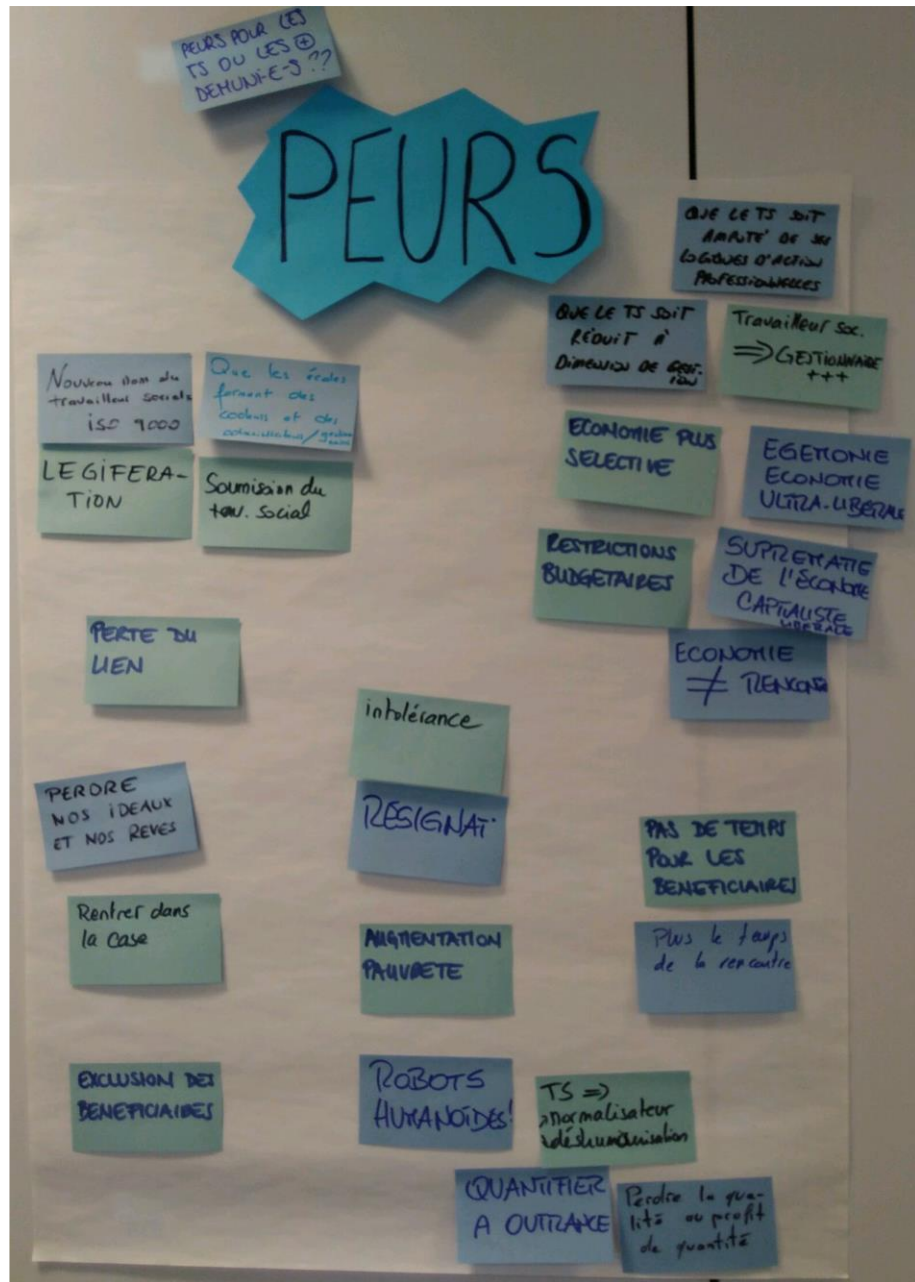 PEURS POUR LES
TS OU LES ⊕
DEMUNI-E-S ??
PEURS
QUE LE TS SOIT
AMPUTÉ DE SES
LOGIQUES D'ACTION
PROFESSIONNELLES
QUE LE TS SOIT
RÉDUIT À
DIMENSION DE GEST-
ION
Travailleur soc.
⇒ GESTIONNAIRE
+++
Nouveau nom du
travailleur social
ISO 9000
Que les écoles
forment des
et des
LEGIFERA-
TION
Soumission du
trav. social
ECONOMIE PLUS
SELECTIVE
EGEMONIE
ECONOMIE
ULTRA-LIBERALE
RESTRICTIONS
BUDGETAIRES
SUPREMATIE
DE L'ÉCONOMIE
CAPITALISTE
LIBERALE
ECONOMIE
≠
PERTE DU
LIEN
intolérance
RESIGNAT.
PERDRE
NOS IDEAUX
ET NOS REVES
PAS DE TEMPS
POUR LES
BENEFICIAIRES
Rentrer dans
la case
AUGMENTATION
PAUVRETE
Plus le temps
de la rencontre
EXCLUSION DES
BENEFICIAIRES
ROBOTS
HUMANOÏDES!
TS ⇒
normalisateur
déshumanisation
QUANTIFIER
A OUTRANCE
Perdre la qua-
lité au profit
de quantité